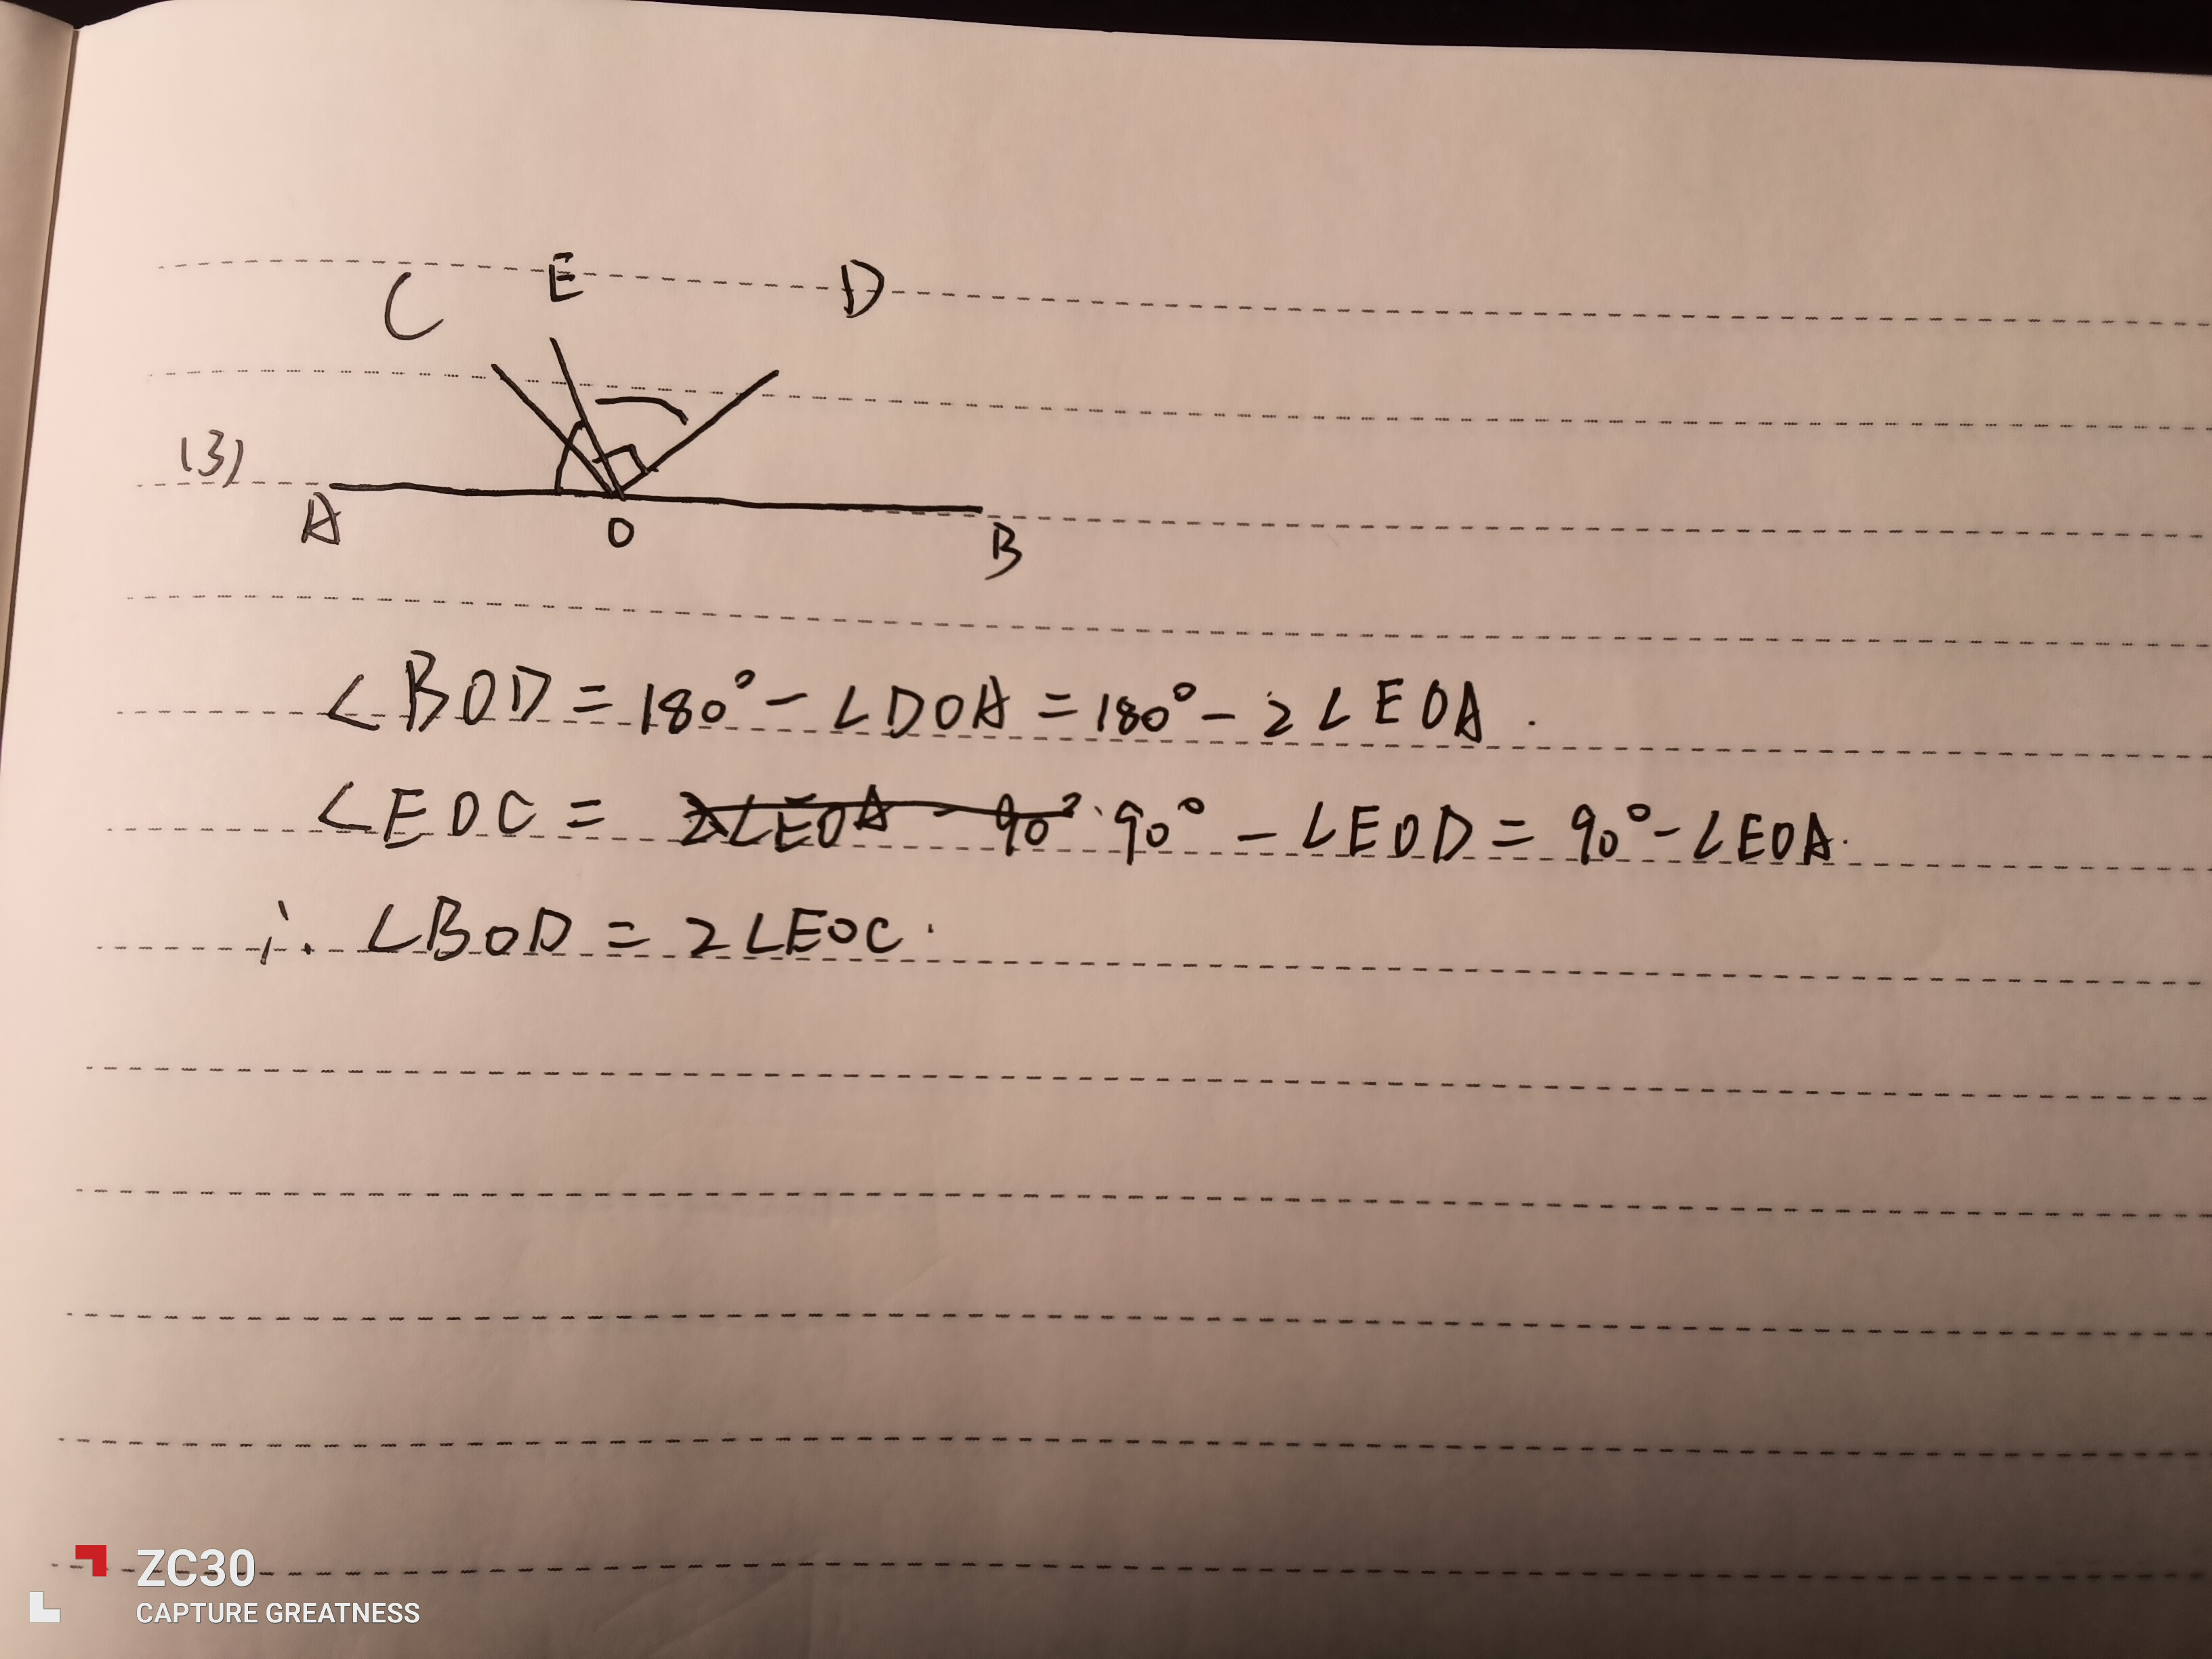 C E D
(3)
A O B
∠BOD = 180° - ∠DOA = 180° - 2∠EOA.
∠EOC = 2∠EOA - 90° 90° - ∠EOD = 90° - ∠EOA.
∴ ∠BOD = 2∠EOC.
ZC30
CAPTURE GREATNESS